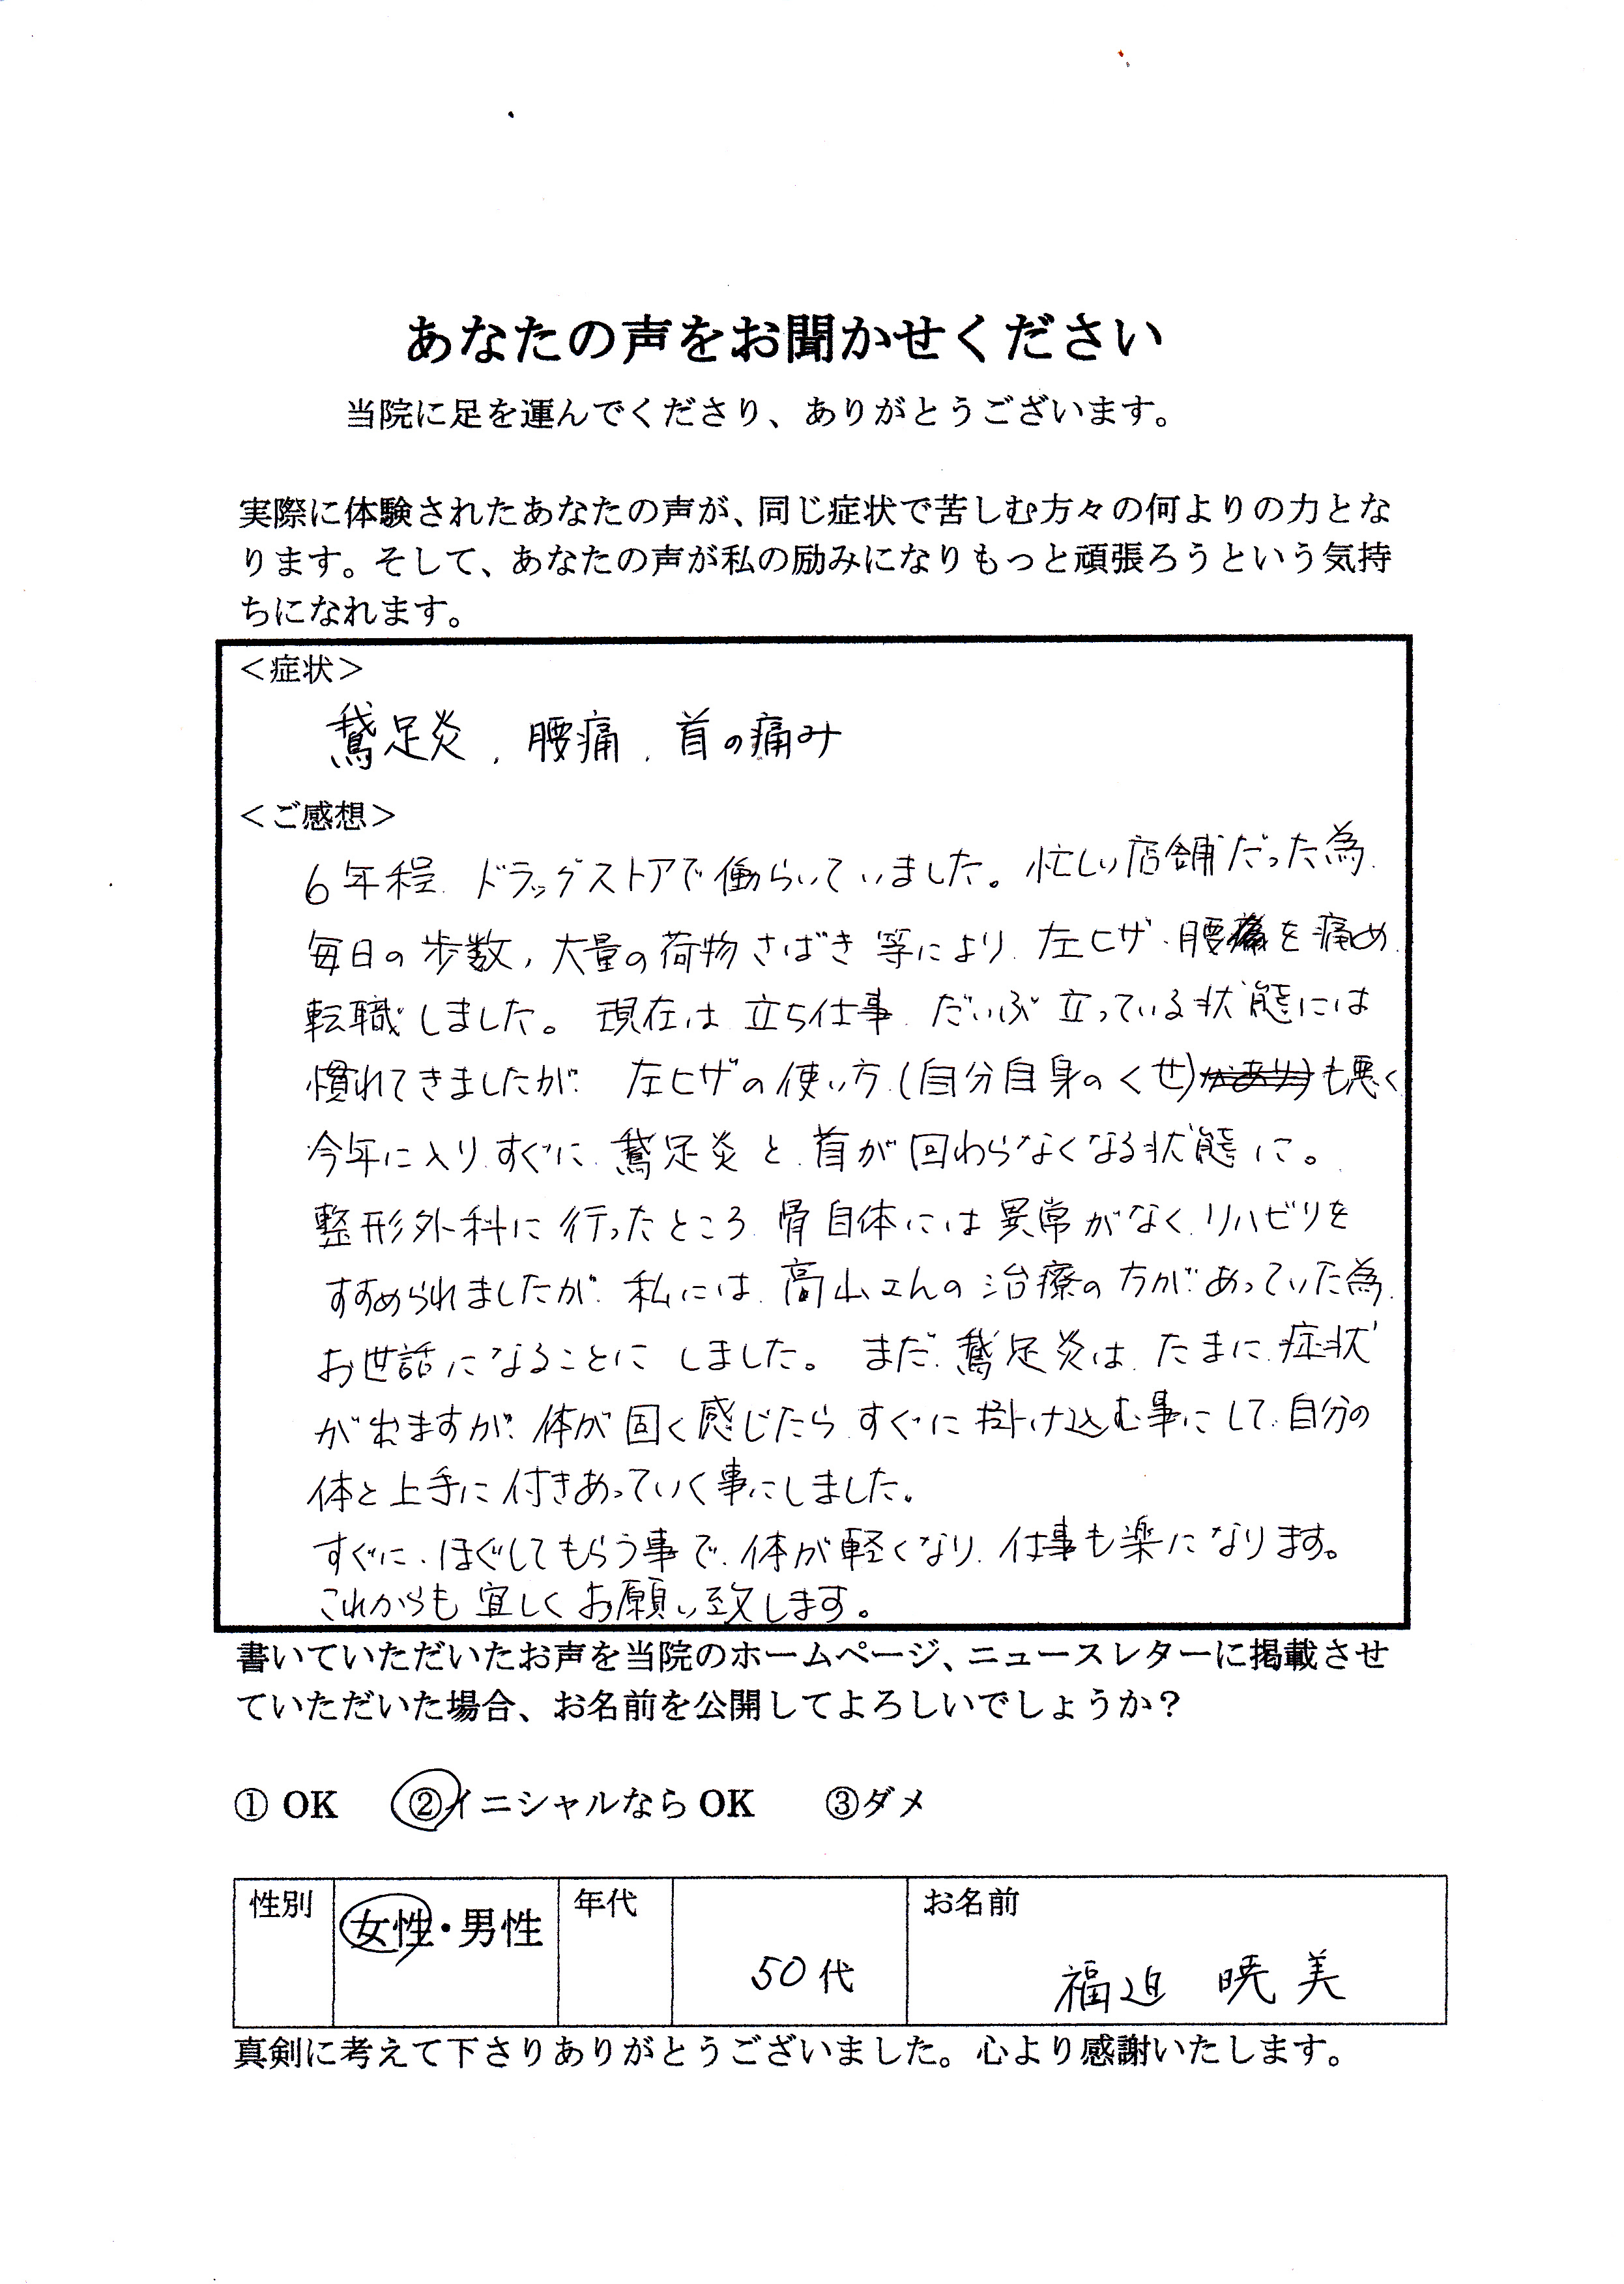 あなたの声をお聞かせください
当院に足を運んでくださり、ありがとうございます。
実際に体験されたあなたの声が、同じ症状で苦しむ方々の何よりの力とな
ります。そして、あなたの声が私の励みになりもっと頑張ろうという気持
ちになれます。
＜症状＞
鵞足炎、腰痛、首の痛み
＜ご感想＞
6年程、ドラッグストアで働らいていました。忙しい店舗だった為、
毎日の歩数、大量の荷物さばき等により、左ヒザ、腰を痛め、
転職しました。現在は立ち仕事、だいぶ立っている状態には
慣れてきましたが、左ヒザの使い方（自分自身のくせ）も悪く
今年に入り、すぐに、鵞足炎と、首が回わらなくなる状態に。
整形外科に行ったところ、骨自体には異常がなく、リハビリを
すすめられましたが、私には、高山さんの治療の方が、あっていた為、
お世話になることにしました。まだ、鵞足炎は、たまに、症状
が出ますが、体が固く感じたら、すぐに掛け込む事にして、自分の
体と上手に付きあっていく事にしました。
すぐに、ほぐしてもらう事で、体が軽くなり、仕事も楽になります。
これからも宜しくお願い致します。
書いていただいたお声を当院のホームページ、ニュースレターに掲載させ
ていただいた場合、お名前を公開してよろしいでしょうか？
① OK ②イニシャルなら OK ③ダメ
性別 女性・男性 年代 50代 お名前 福迫 暁美
真剣に考えて下さりありがとうございました。心より感謝いたします。